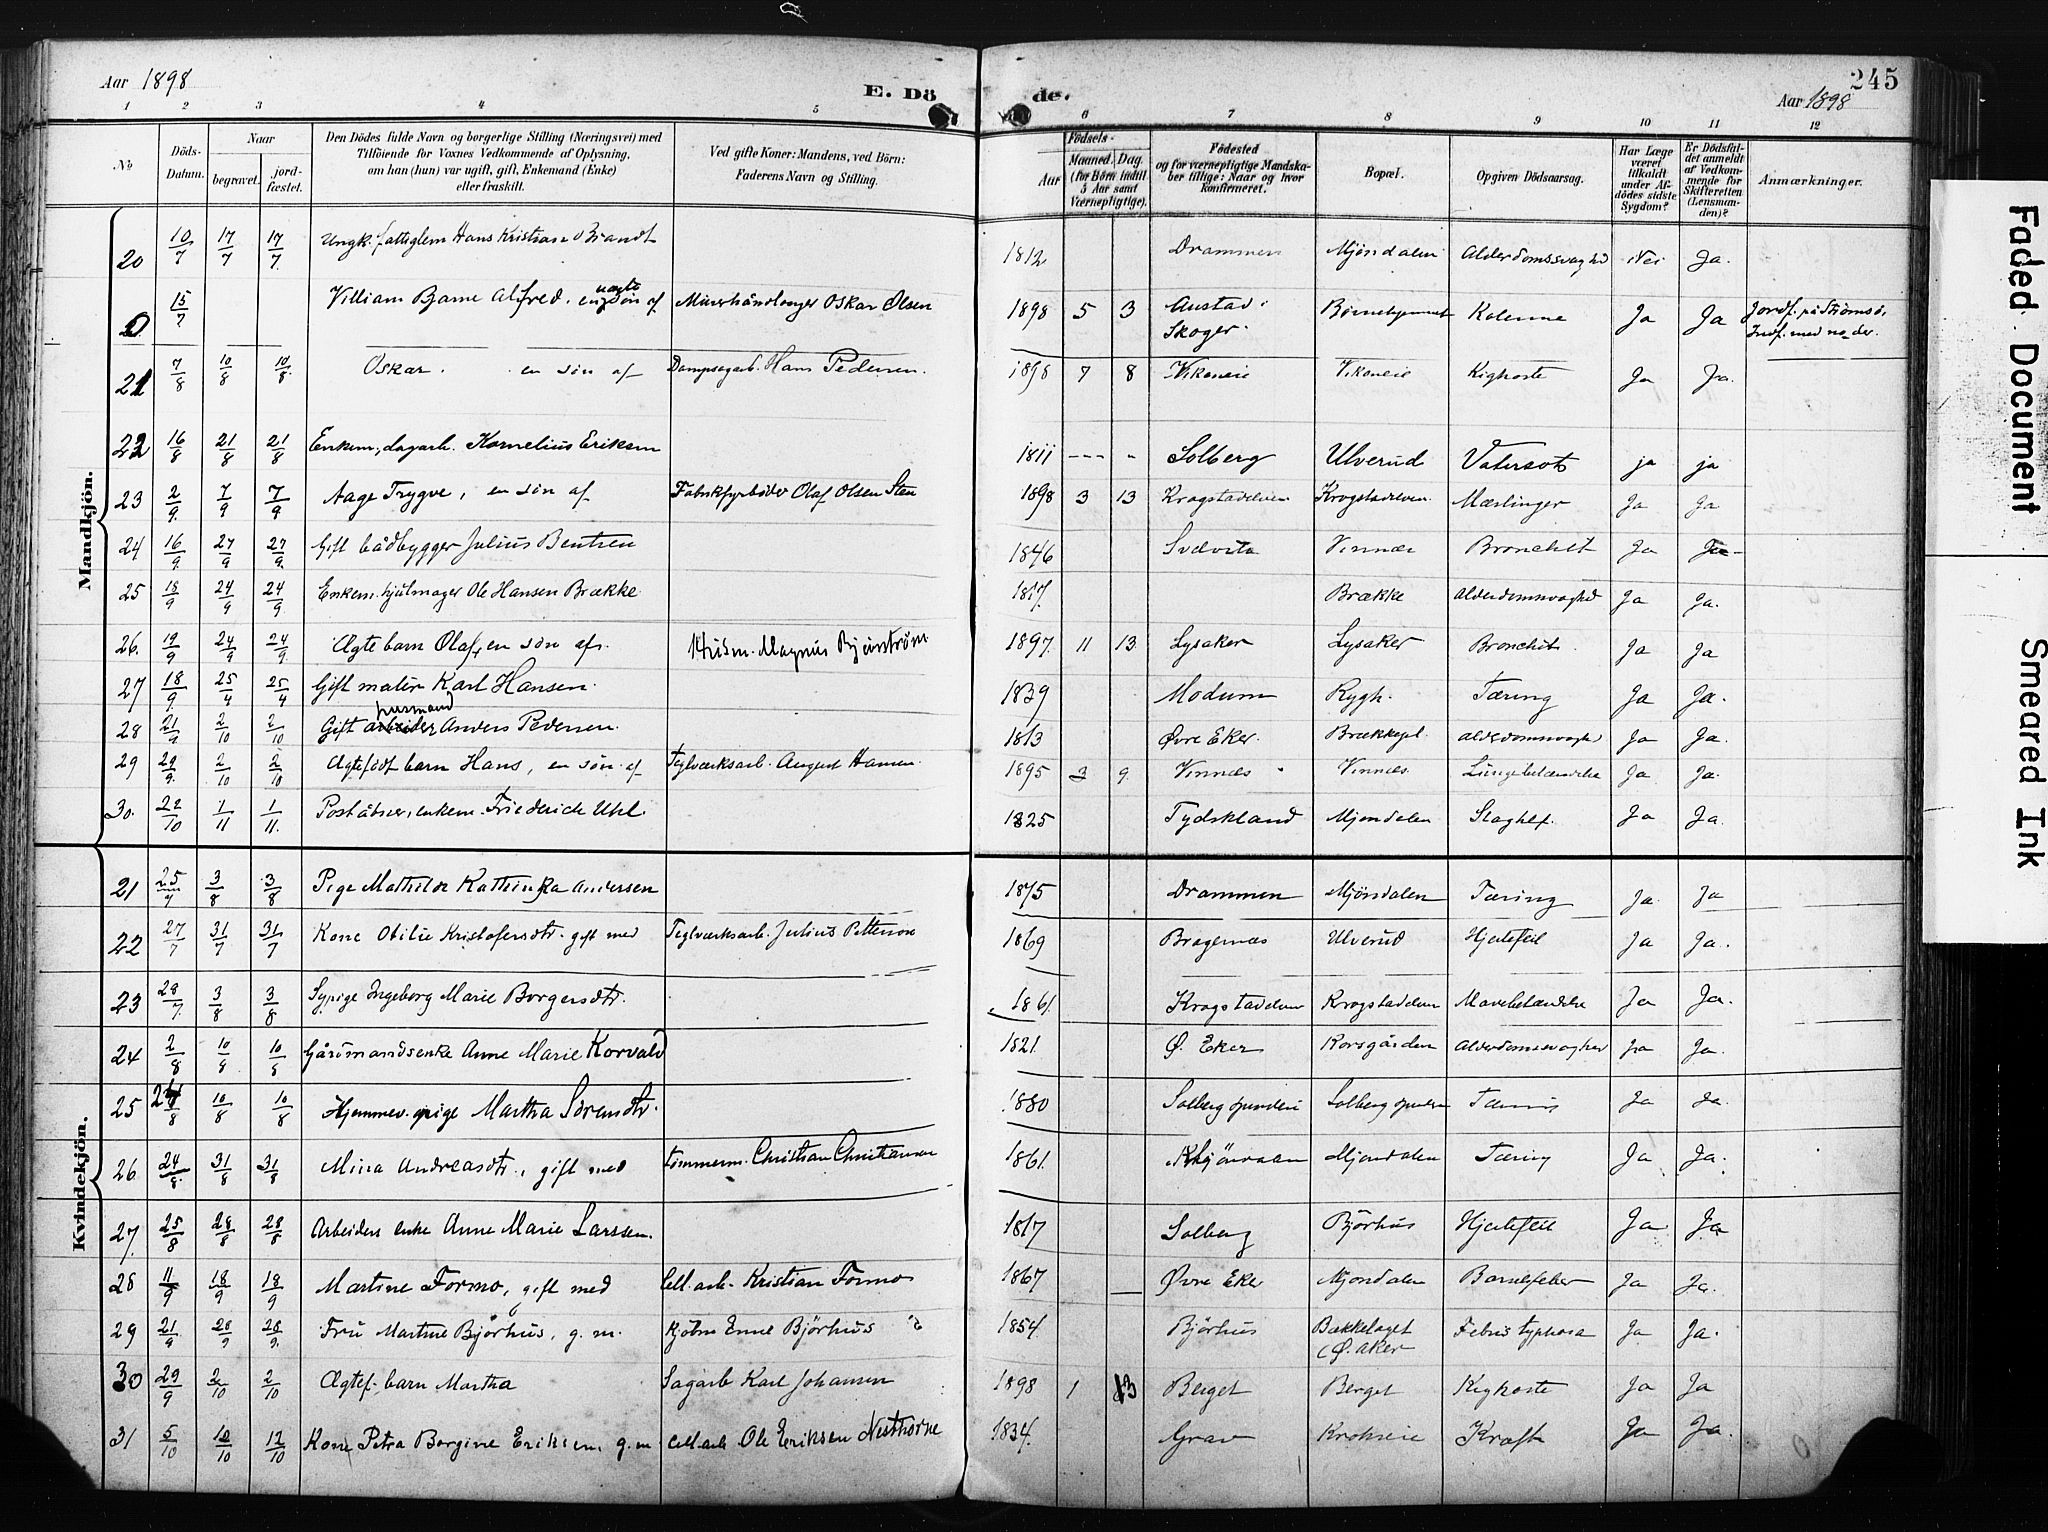 Aar 1898
E. Dö
de.
245
Aar 1898
1 2 3 4 5 6 7 8 9 10 11 12
No
Döds-Datum.
Naar
begravet.
jord-fæstet.
Den Dödes fulde Navn og borgerlige Stilling (Næringsvei) med
Tilföiende for Voxnes Vedkommende af Oplysning,
om han (hun) var ugift, gift, Enkemand (Enke)
eller fraskilt.
Ved gifte Koner: Mandens, ved Börn:
Faderens Navn og Stilling.
Födsels-
Aar
Maaned. Dag.
(for Börn indtil
5 Aar samt
Værnepligtige).
Födested
og for værnepligtige Mandska-
ber tillige: Naar og hvor
konfirmeret.
Bopæl.
Opgiven Dödsaarsag.
Har Læge
været
tilkaldt
under Af-
dödes sidste
Sygdom?
Er Dödsfal-
det anmeldt
af Vedkom-
mende for
Skifteretten
(Lensman-
den)?
Anmærkninger.
Mandkjön.
20 10/7 17/7 17/7 Ungk. fattiglem Hans Kristian Brandt 1812 Drammen Mjöndalen Alderdomssvaghed Nei Ja.
15/7 William Bjarne Alfred. uægte søn af Murerhåndlanger Oskar Olsen 1898 5 3 Austad i Skoger. Kolerine Ja Ja Jordf. på Strømsø.
21 7/8 10/8 10/8 Oskar. en søn af Dampsagarb. Hans Pedersen. 1898 7 8 Vikaneie Vikaneie Kighoste Ja Ja.
22 16/8 21/8 21/8 Enkem., dagarb. Kornelius Eriksen 1811 --- " Solberg Ulverud Vatersot ja ja
23 2/9 7/9 7/9 Aage Trygve, en søn af Fabrikfyrbøder Olaf Olsen Sten 1898 3 13 Krogstadelven Krogstadelven. Mæslinger Ja Ja
24 16/9 27/9 27/9 Gift bådbygger Julius Bentsen 1846 Svelvik Vinnæs Bronchit Ja Ja
25 18/9 24/9 24/9 Enkem. hjulmager Ole Hansen Brække 1817. Brække Alderdomssvaghed Ja Ja.
26. 19/9 24/9 24/9 Ægte barn Olaf, en søn af Husm. Magnus Bjerström 1897 11 13 Lysaker Lysaker Bronchit Ja Ja
27 18/9 25/4 25/4 Gift maler Karl Hansen. 1839 Modum Rygh. Tæring Ja Ja.
28 21/9 2/10 2/10 Gift husmand Anders Pedersen. 1813 Øvre Eker. Brækkepl. Alderdomssvaghed Ja Ja.
29 29/9 2/10 2/10 Ægtefødt barn Hans, en søn af Teglværksarb. August Hansen 1895 3 9 Vinnæs Vinnæs Lungebetændelse Ja Ja.
30. 22/10 1/11 1/11. Poståbner, enkem. Friederich Uhl. 1825 Tydskland Mjöndalen Slagtilf. Ja Ja.
Kvindekjön.
21 25/7 3/8 3/8 Pige Mathilde Kathinka Andersen 1875 Drammen Mjöndalen Tæring Ja. Ja
22 27/7 31/7 31/7 Kone Otilie Kristofersdtr. gift med Teglværksarb. Julius Petterson 1869 Bragernæs Ulverud Hjertefeil Ja Ja.
23 28/7. 3/8 3/8 Sypige Ingeborg Marie Borgersdtr. 1861. Krogstadelven Krogstadelven Mavebetændelse Ja Ja.
24 2/8 10/8 10/8 Gårdmandsenke Anne Marie Korvald 1821. Ø. Eker Korsgården Alderdomssvaghed ja Ja.
25 24/8 10/8 10/8 Hjemmev. pige Martha Sörensdtr. 1880 Solberg spinderi Solberg spinderi Ja Ja.
26. 24/8. 31/8 31/8 Mina Andreasdtr., gift med Tömmerm. Christian Christiansen 1861. Mjöndalen Tæring Ja Ja.
27. 25/8 28/8 28/8 Arbeiders enke Anne Marie Larssen. 1817 Solberg Björhus Hjertefeil Ja Ja
28 11/9 18/9 18/9 Martine Formo, gift med Cell.arb. Kristian Formo 1867 Øvre Eker Mjöndalen Barselfeber Ja Ja.
29 21/9 28/9 28/9. Fru Martine Björhus, g. m. Björhus 1854. Björhus Bækkelaget Ø. Aker Febris typhosa Ja Ja.
30 29/9 2/10 2/10 Ægtef. barn Martha Sagarb Karl Johansen 1898 1 13 Berget Berget Kighoste Ja Ja
31 5/10 10/10 12/10 Kone Petra Borgine Eriksen, g. m. Cell.arb Ole Eriksen Nesthorne 1834. Grav Krokneie Kræft Ja Ja.
Faded Document
Smeared Ink